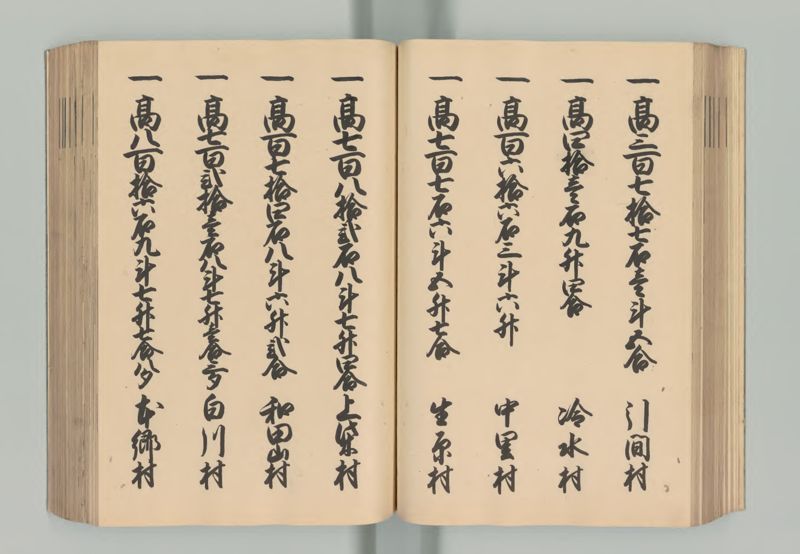 一 高三百七拾七石壱斗五合 引間村
一 高四拾壱石九升四合 冷水村
一 高百六拾六石三斗六升 中里村
一 高七百七石六斗五升七合 生原村
一 高七百八拾弐石八斗七升四合 上柴村
一 高百七拾四石八斗六升弐合 和田山村
一 高七百弐拾三石八斗七升壱合三夕 白川村
一 高八百拾六石九斗七升七合八夕 本郷村